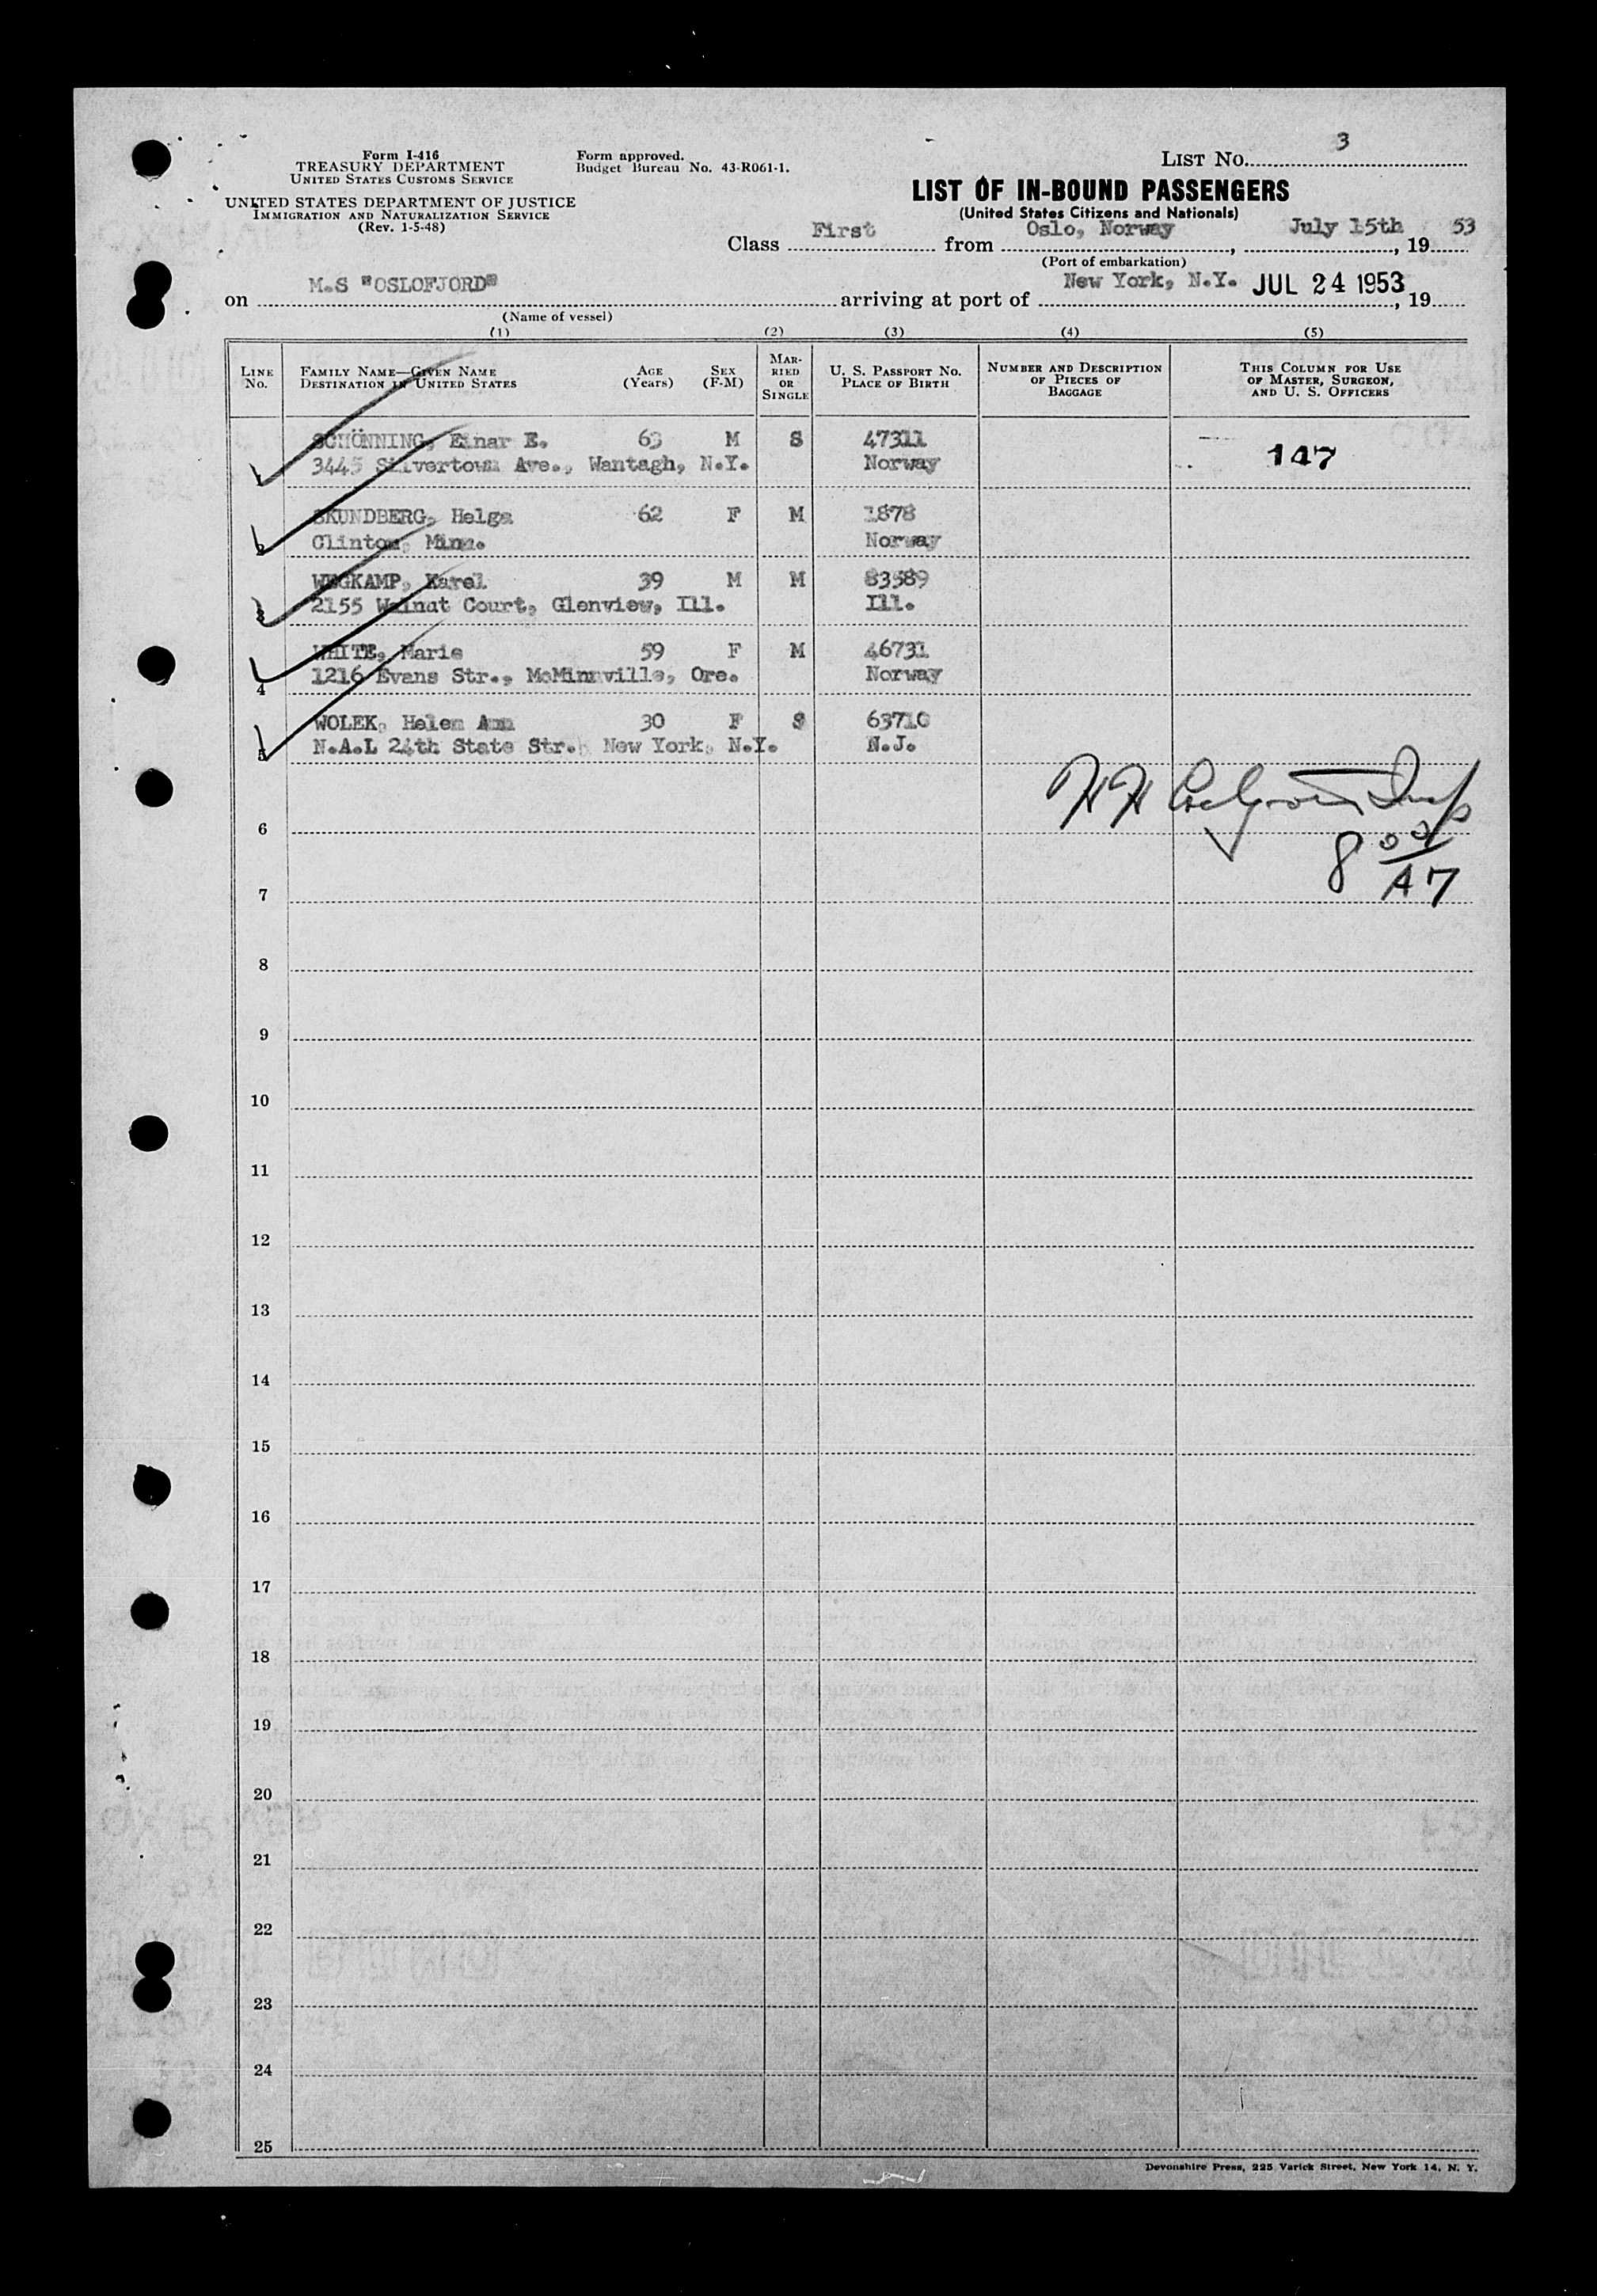 3
Form I-416
TREASURY DEPARTMENT
UNITED STATES CUSTOMS SERVICE
UNITED STATES DEPARTMENT OF JUSTICE
IMMIGRATION AND NATURALIZATION SERVICE
(Rev. 1-5-48)
Form approved.
Budget Bureau No. 43-R061-1.
LIST NO.
LIST OF IN-BOUND PASSENGERS
(United States Citizens and Nationals)
Class First from Oslo, Norway, July 15th, 19 53
(Port of embarkation)
on M.S "OSLOFJORD" arriving at port of New York, N.Y. JUL 24 1953, 19
(Name of vessel)
(1) (2) (3) (4) (5)
LINE NO.
FAMILY NAME—GIVEN NAME
DESTINATION IN UNITED STATES
AGE (YEARS)
SEX (F-M)
MARRIED OR SINGLE
U. S. PASSPORT NO.
PLACE OF BIRTH
NUMBER AND DESCRIPTION OF PIECES OF BAGGAGE
THIS COLUMN FOR USE OF MASTER, SURGEON, AND U. S. OFFICERS
SCHÖNNING, Einar E. 63 M S 47311
3445 Silvertown Ave., Wantagh, N.Y. Norway
147
2 SKUNDBERG, Helga 62 F M 1878
Clinton, Minn. Norway
3 WEGKAMP, Karel 39 M M 83589
2155 Walnut Court, Glenview, Ill. Ill.
4 WHITE, Marie 59 F M 46731
1216 Evans Str., McMinnville, Ore. Norway
5 WOLEK, Helen Ann 30 F S 63710
N.A.L 24th State Str. New York, N.Y. N.J.
6
7
8
9
10
11
12
13
14
15
16
17
18
19
20
21
22
23
24
25
Devonshire Press, 225 Varick Street, New York 14, N. Y.